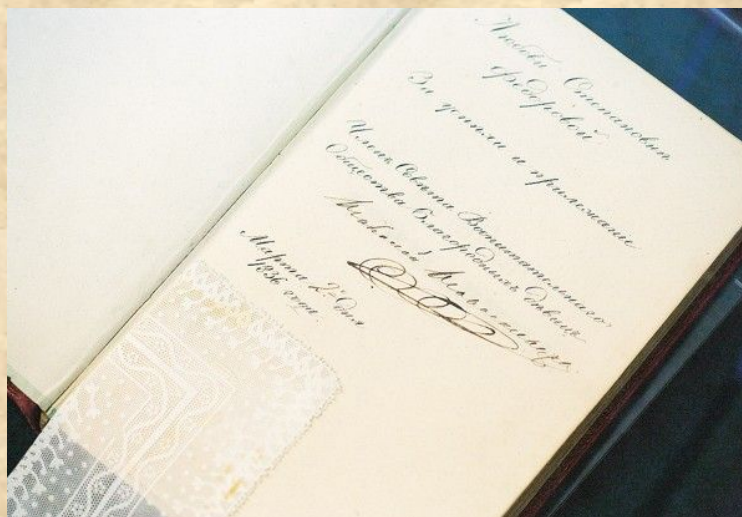 Любови Степановнѣ
Федоровой
За успѣхи и прилежаніе
Членъ Совѣта Воспитательнаго
Общества Благородныхъ Дѣвицъ
Марта 2 дня
1836 года.